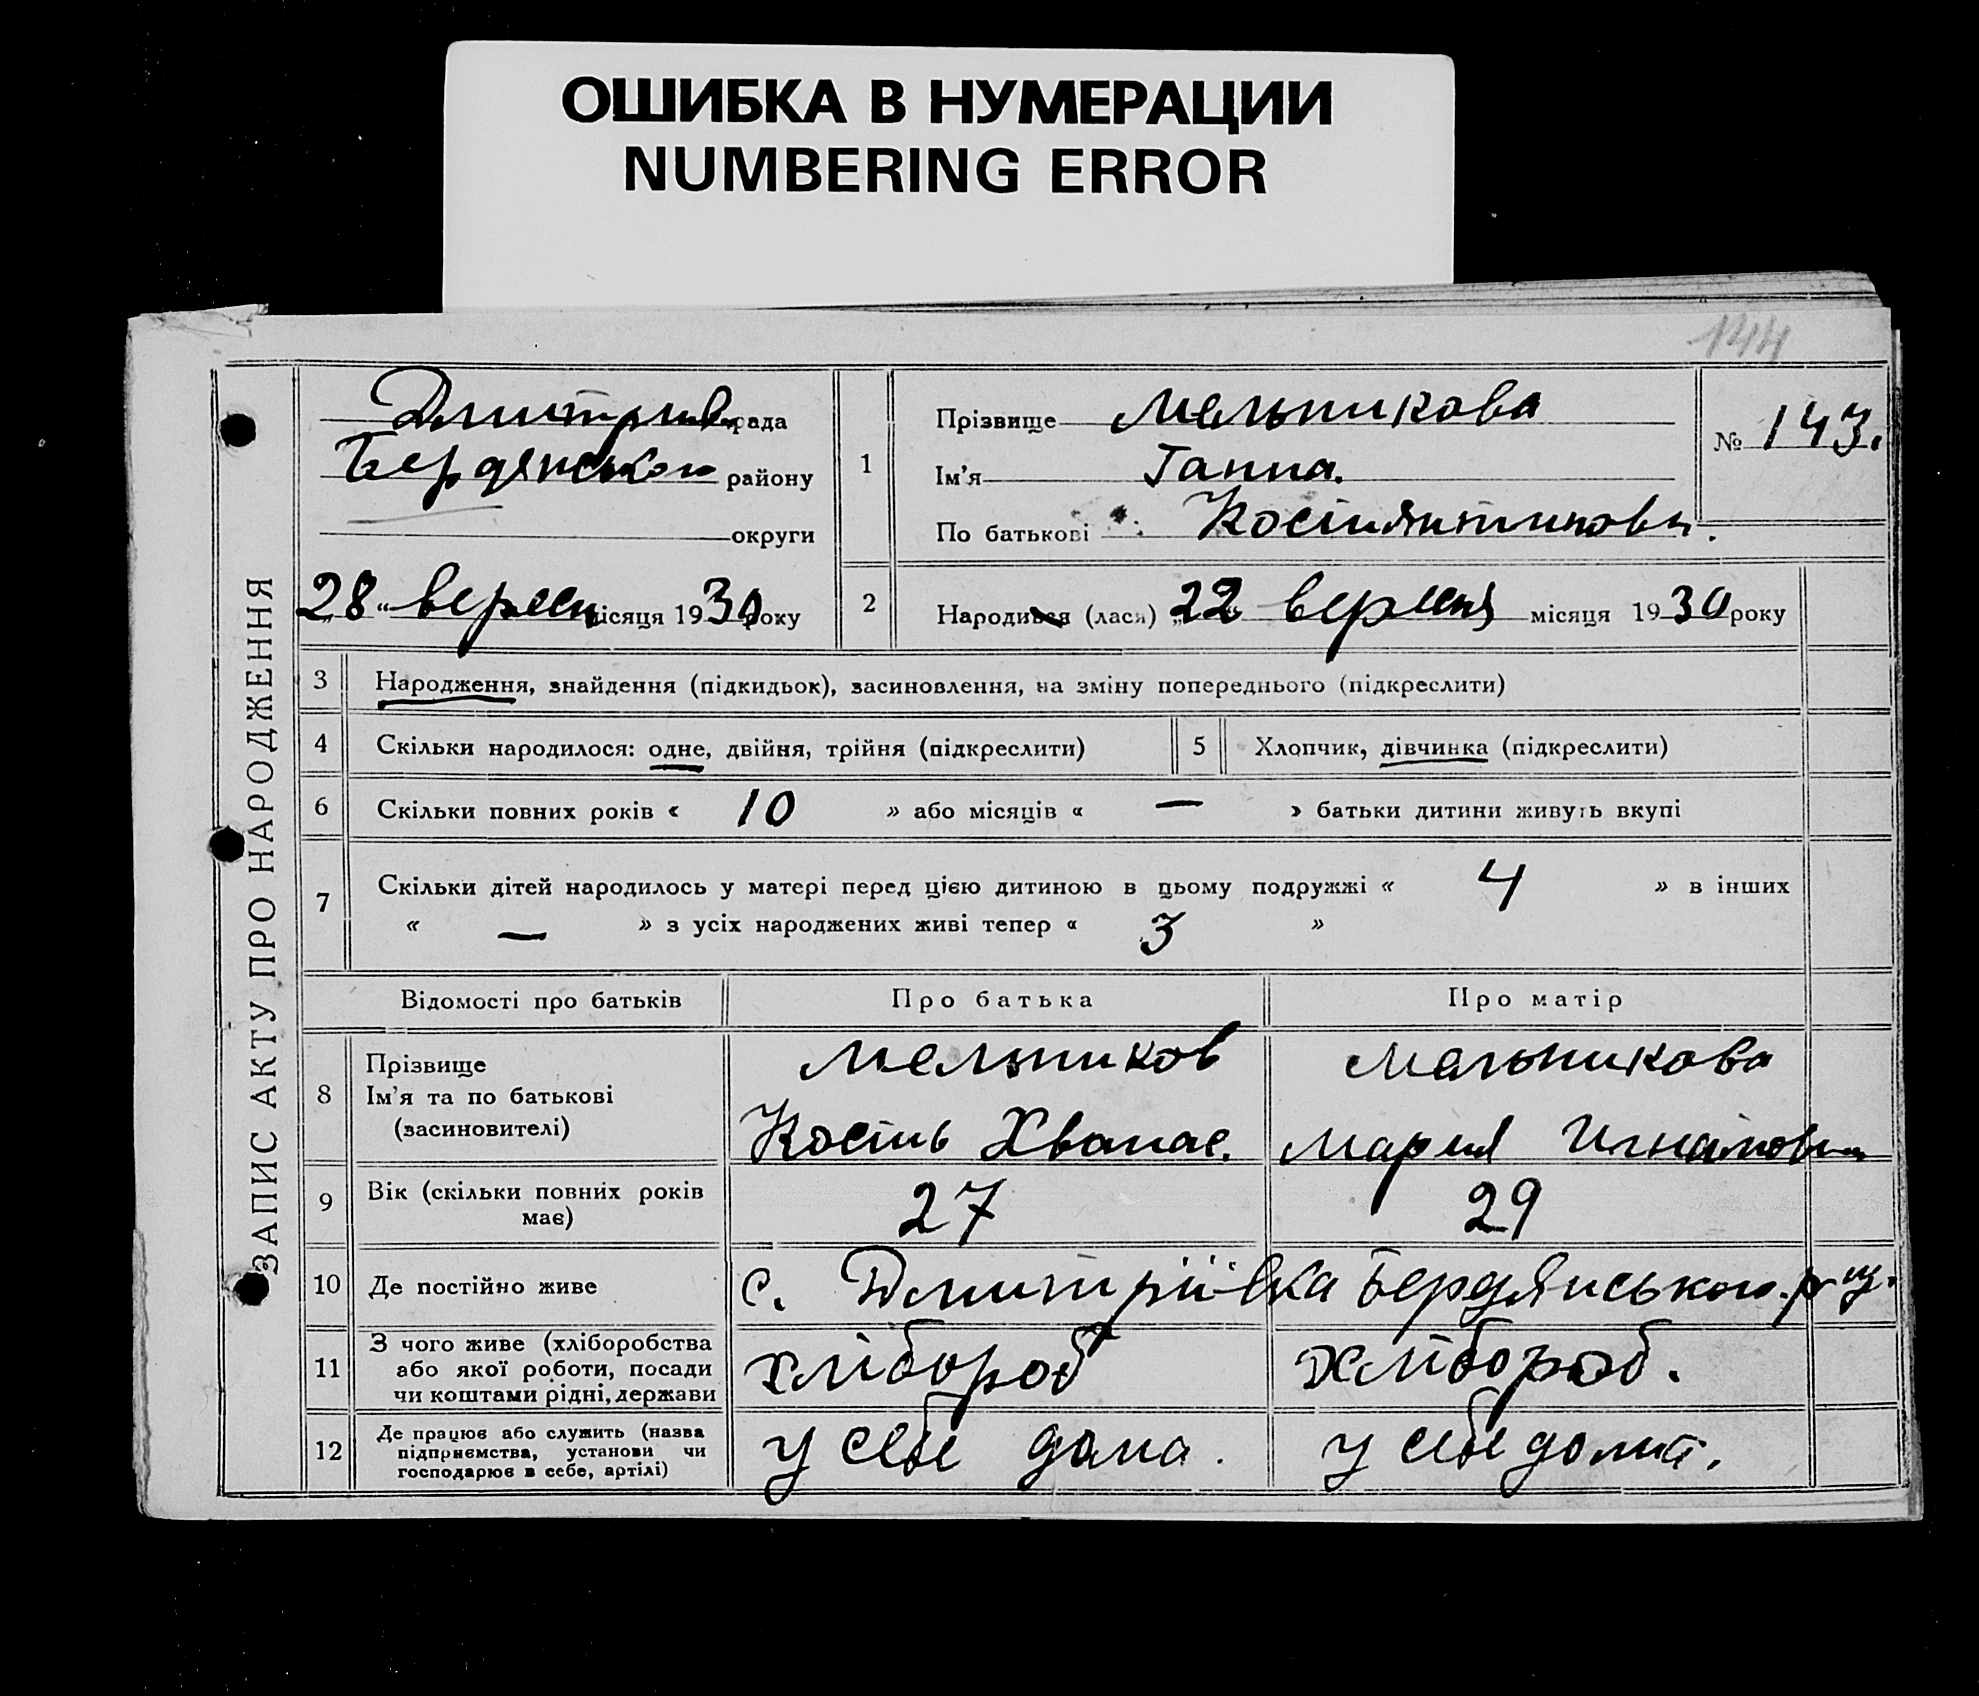 ОШИБКА В НУМЕРАЦИИ
NUMBERING ERROR
144
ЗАПИС АКТУ ПРО НАРОДЖЕННЯ
Дмитрів рада
Бердянського району
округи
28 " вересн місяця 1930 року
1
Прізвище Мельникова
Ім'я Ганна.
По батькові Костянтиновн.
№ 143.
2 Народився (лася) „22 вересня місяця 1930 року
3 Народження, знайдення (підкидьок), засиновлення, на зміну попереднього (підкреслити)
4 Скільки народилося: одне, двійня, трійня (підкреслити) 5 Хлопчик, дівчинка (підкреслити)
6 Скільки повних років « 10 » або місяців « — » батьки дитини живуть вкупі
7 Скільки дітей народилось у матері перед цією дитиною в цьому подружжі « 4 » в інших
« — » з усіх народжених живі тепер « 3 »
Відомості про батьків Про батька Про матір
8 Прізвище
Ім'я та по батькові
(засиновителі)
Мельников
Кость Хванас.
Мельникова
Мария Игнатовн
9 Вік (скільки повних років
має)
27 29
10 Де постійно живе с. Дмитріївка Бердянського р-ну.
11 З чого живе (хліборобства
або якої роботи, посади
чи коштами рідні, держави
хлібороб хлібороб.
12 Де працює або служить (назва
підприємства, установи чи
господарює в себе, артілі)
у себе дома. у себе дома.